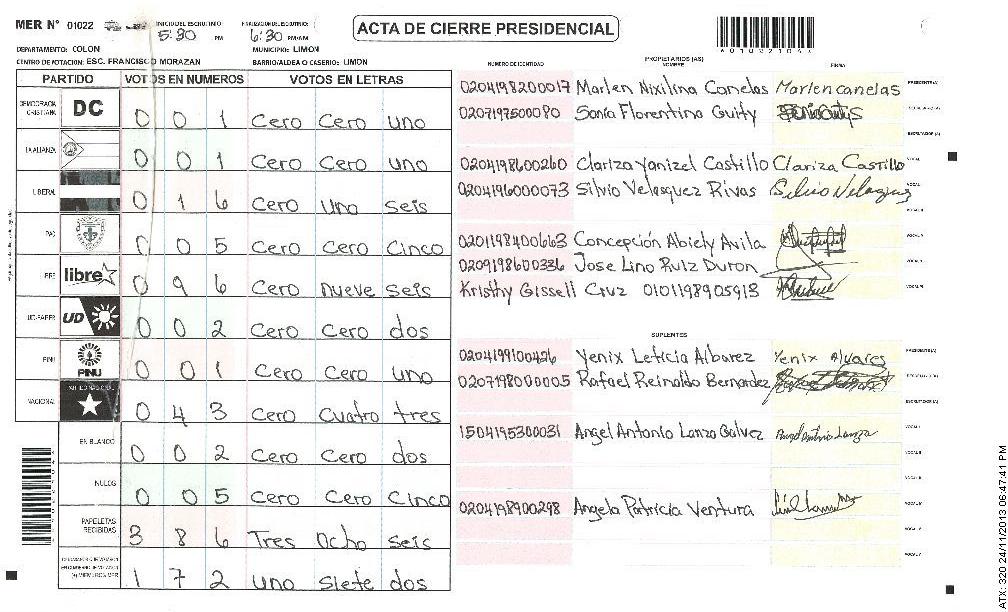 MER Nº 01022
INICIO DEL ESCRUTINIO
5:30 PM
FINALIZACION DEL ESCRUTINIO:
6:30 PM/AM
ACTA DE CIERRE PRESIDENCIAL
DEPARTAMENTO: COLON
MUNICIPIO: LIMON
CENTRO DE VOTACION: ESC. FRANCISCO MORAZAN
BARRIO/ALDEA O CASERIO: LIMON
PARTIDO VOTOS EN NUMEROS VOTOS EN LETRAS
DEMOCRACIA CRISTIANA DC 0 0 1 Cero Cero uno
LA ALIANZA 0 0 1 Cero Cero uno
LIBERAL 0 1 6 Cero Uno seis
PAC 0 0 5 Cero Cero Cinco
libre 0 9 6 Cero nueve seis
UD-FAPER UD 0 0 2 Cero Cero dos
PINU PINU 0 0 1 Cero Cero uno
NACIONAL 0 4 3 Cero Cuatro tres
EN BLANCO 0 0 2 Cero Cero dos
NULOS 0 0 5 Cero Cero Cinco
PAPELETAS RECIBIDAS 3 8 6 Tres Ocho seis
1 7 2 uno siete dos
NUMERO DE IDENTIDAD
PROPIETARIOS (AS)
NOMBRE
FIRMA
0204198200017 Marlen Nixilina Canelas Marlencanelas PRESIDENTE(A)
0207197500080 Sonia Florentina Guity
ESCRUTADOR (A)
0204198600260 Clariza Yanizel Castillo Clariza Castillo VOCAL I
0204196000073 Silvio Velasquez Rivas Silvio Velasquez VOCAL II
VOCAL III
0201198400663 Concepción Abiely Avila VOCAL IV
0209198600336 Jose Lino Ruiz Duron VOCAL V
Kristhy Gissell Cruz 0101198905913 VOCAL VI
SUPLENTES
0204199100426 Yenix Leticia Albarez Yenix Alvares PRESIDENTE(A)
0207198000005 Rafael Reinaldo Bernardez
ESCRUTADOR (A)
1504195300031 Angel Antonio Lanza Galvez Angel Antonio Lanza VOCAL I
VOCAL II
VOCAL III
0204198900298 Angela Patricia Ventura VOCAL IV
VOCAL V
VOCAL VI
ATX: 320 24/11/2013 06:47:41 PM